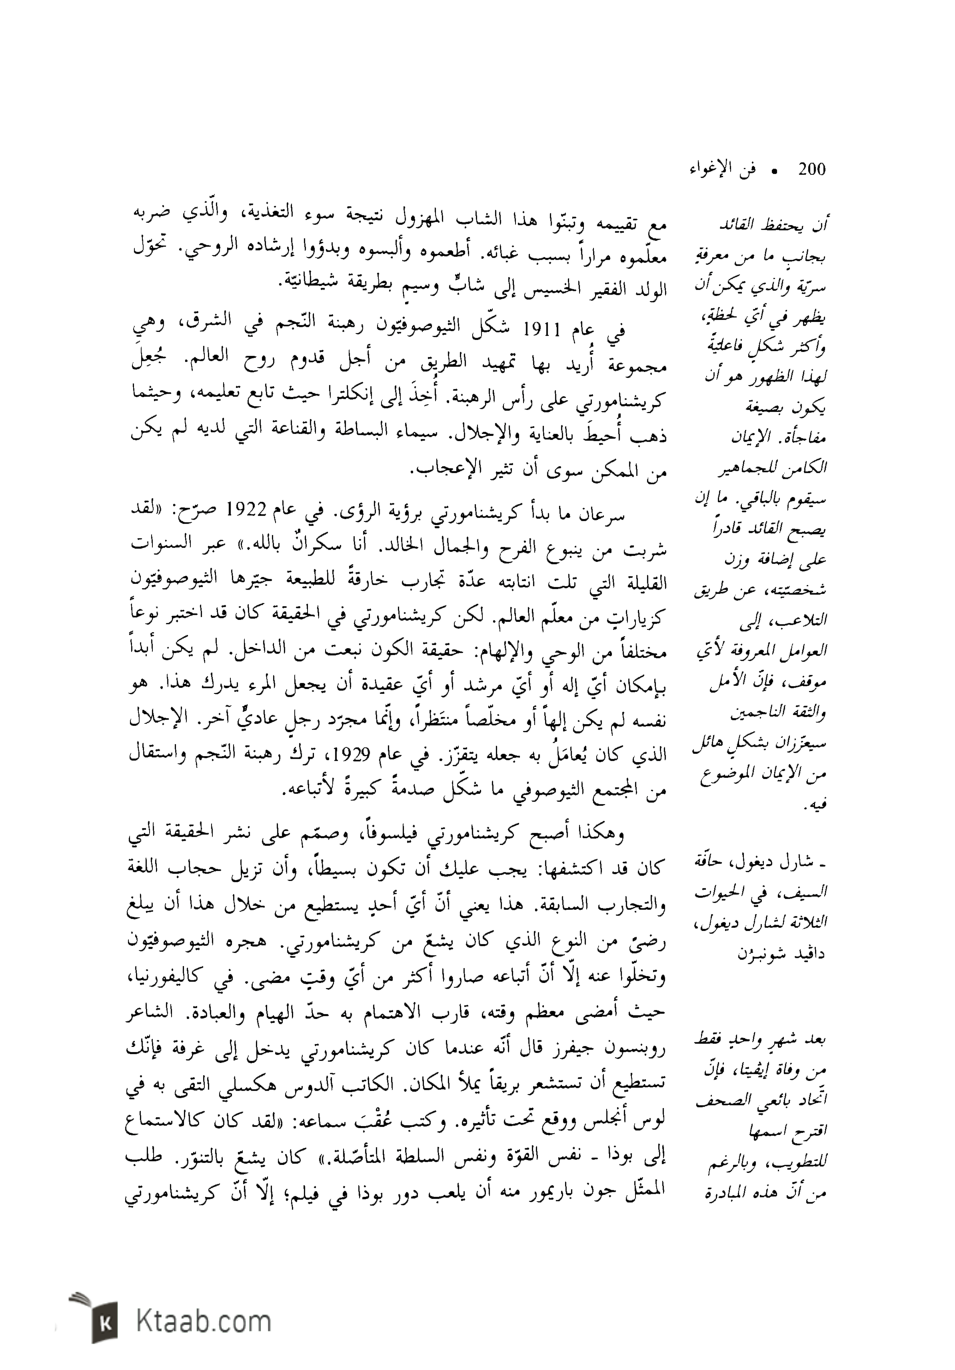 200 • فن الإغواء
مع تقييمه وتبنّوا هذا الشاب المهزول نتيجة سوء التغذية، والّذي ضربه
معلّموه مراراً بسبب غبائه. أطعموه وألبسوه وبدؤوا إرشاده الروحي. تحوّل
الولد الفقير الخسيس إلى شابٍّ وسيمٍ بطريقة شيطانيّة.
في عام 1911 شكّل الثيوصوفيّون رهبنة النّجم في الشرق، وهي
مجموعة أُريد بها تمهيد الطريق من أجل قدوم روح العالم. جُعِلَ
كريشنامورتي على رأس الرهبنة. أُخِذَ إلى إنكلترا حيث تابع تعليمه، وحيثما
ذهب أُحيطَ بالعناية والإجلال. سيماء البساطة والقناعة التي لديه لم يكن
من الممكن سوى أن تثير الإعجاب.
سرعان ما بدأ كريشنامورتي برؤية الرؤى. في عام 1922 صرّح: «لقد
شربت من ينبوع الفرح والجمال الخالد. أنا سكرانٌ بالله.» عبر السنوات
القليلة التي تلت انتابته عدّة تجارب خارقةً للطبيعة جيّرها الثيوصوفيّون
كزياراتٍ من معلّم العالم. لكن كريشنامورتي في الحقيقة كان قد اختبر نوعاً
مختلفاً من الوحي والإلهام: حقيقة الكون نبعت من الداخل. لم يكن أبداً
بإمكان أيّ إله أو أيّ مرشد أو أيّ عقيدة أن يجعل المرء يدرك هذا. هو
نفسه لم يكن إلهاً أو مخلّصاً منتَظراً، وإنّما مجرّد رجلٍ عاديٍّ آخر. الإجلال
الذي كان يُعامَلُ به جعله يتقزّز. في عام 1929، ترك رهبنة النّجم واستقال
من المجتمع الثيوصوفي ما شكّل صدمةً كبيرةً لأتباعه.
وهكذا أصبح كريشنامورتي فيلسوفاً، وصمّم على نشر الحقيقة التي
كان قد اكتشفها: يجب عليك أن تكون بسيطاً، وأن تزيل حجاب اللغة
والتجارب السابقة. هذا يعني أنّ أيّ أحدٍ يستطيع من خلال هذا أن يبلغ
رضىً من النوع الذي كان يشعّ من كريشنامورتي. هجره الثيوصوفيّون
وتخلّوا عنه إلّا أنّ أتباعه صاروا أكثر من أيّ وقتٍ مضى. في كاليفورنيا،
حيث أمضى معظم وقته، قارب الاهتمام به حدّ الهيام والعبادة. الشاعر
روبنسون جيفرز قال أنّه عندما كان كريشنامورتي يدخل إلى غرفة فإنّك
تستطيع أن تستشعر بريقاً يملأ المكان. الكاتب آلدوس هكسلي التقى به في
لوس أنجلس ووقع تحت تأثيره. وكتب عُقْبَ سماعه: «لقد كان كالاستماع
إلى بوذا ـ نفس القوّة ونفس السلطة المتأصّلة.» كان يشعّ بالتنوّر. طلب
الممثّل جون باريمور منه أن يلعب دور بوذا في فيلم؛ إلّا أنّ كريشنامورتي
أن يحتفظ القائد
بجانبٍ ما من معرفةٍ
سريّة والذي يمكن أن
يظهر في أيّ لحظةٍ،
وأكثر شكلٍ فاعليّةً
لهذا الظهور هو أن
يكون بصيغة
مفاجأة. الإيمان
الكامن للجماهير
سيقوم بالباقي. ما إن
يصبح القائد قادراً
على إضافة وزن
شخصيّته، عن طريق
التلاعب، إلى
العوامل المعروفة لأيّ
موقف، فإنّ الأمل
والثقة الناجمين
سيعزّزان بشكلٍ هائل
من الإيمان الموضوع
فيه.
ـ شارل ديغول، حافّة
السيف، في الحيوات
الثلاثة لشارل ديغول،
داڤيد شونبرُن
بعد شهرٍ واحدٍ فقط
من وفاة إيڤيتا، فإنّ
اتّحاد بائعي الصحف
اقترح اسمها
للتطويب، وبالرغم
من أنّ هذه المبادرة
Ktaab.com